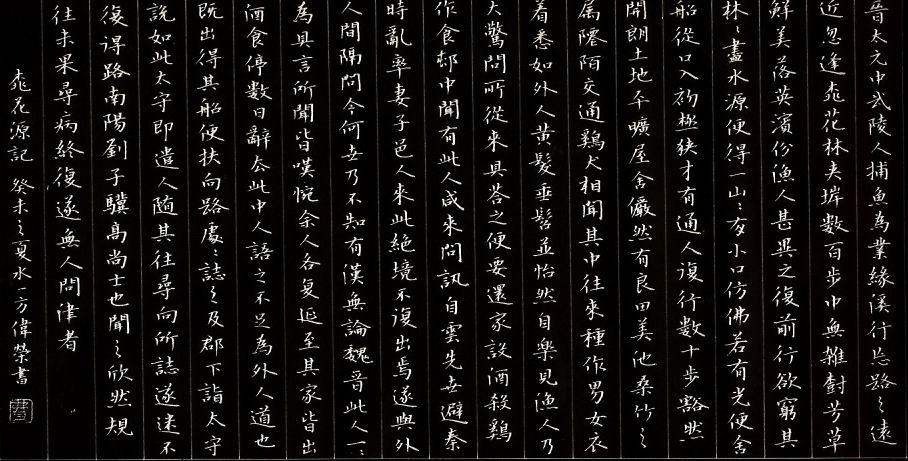 晉太元中武陵人捕魚為業緣溪行忘路之遠
近忽逢桃花林夾岸數百步中無雜樹芳草
鮮美落英濱份漁人甚異之復前行欲窮其
林林盡水源便得一山山有小口仿佛若有光便舍
船從口入初極狹才有通人復行數十步豁然
開朗土地平曠屋舍儼然有良田美池桑竹之
屬阡陌交通鷄犬相聞其中往來種作男女衣
着悉如外人黃髮垂髫並怡然自樂見漁人乃
大驚問所從來具答之便要還家設酒殺鷄
作食邨中聞有此人咸來問訊自雲先世避秦
時亂率妻子邑人來此絕境不復出焉遂與外
人間隔問今何世乃不知有漢無論魏晉此人一一
為具言所聞皆嘆惋余人各复延至其家皆出
酒食停數日辭去此中人語之不足為外人道也
既出得其船便扶向路處處誌之及郡下詣太守
說如此太守即遣人隨其往尋向所誌遂迷不
復得路南陽劉子驥高尚士也聞之欣然規
往未果尋病終復遂無人問津者
桃花源記 癸未之夏水一方偉榮書